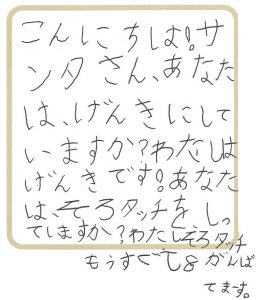 こんにちは!サ
ンタさん、あなた
は、げんきにして
いますか?わたしは
げんきです!あなた
は、そろタッチを、しっ
ていますか?わたしそろタッチ
もうすぐでS8がんば
てます。